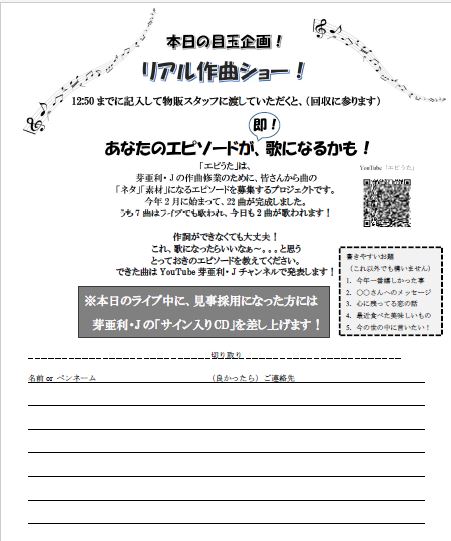 本日の目玉企画！
リアル作曲ショー！
12:50 までに記入して物販スタッフに渡していただくと、（回収に参ります）
即！
あなたのエピソードが、歌になるかも！
「エピうた」は、
芽亜利・J の作曲修業のために、皆さんから曲の
「ネタ」「素材」になるエピソードを募集するプロジェクトです。
今年 2 月に始まって、22 曲が完成しました。
うち 7 曲はライブでも歌われ、今日も 2 曲が歌われます！
YouTube「エピうた」
作詞ができなくても大丈夫！
これ、歌になったらいいなぁ～。。。と思う
とっておきのエピソードを教えてください。
できた曲は YouTube 芽亜利・J チャンネルで発表します！
書きやすいお題
（これ以外でも構いません）
1. 今年一番嬉しかった事
2. 〇〇さんへのメッセージ
3. 心に残ってる恋の話
4. 最近食べた美味しいもの
5. 今の世の中に言いたい！
※本日のライブ中に、見事採用になった方には
芽亜利・J の「サイン入り CD」を差し上げます！
切り取り
名前 or ペンネーム （良かったら）ご連絡先